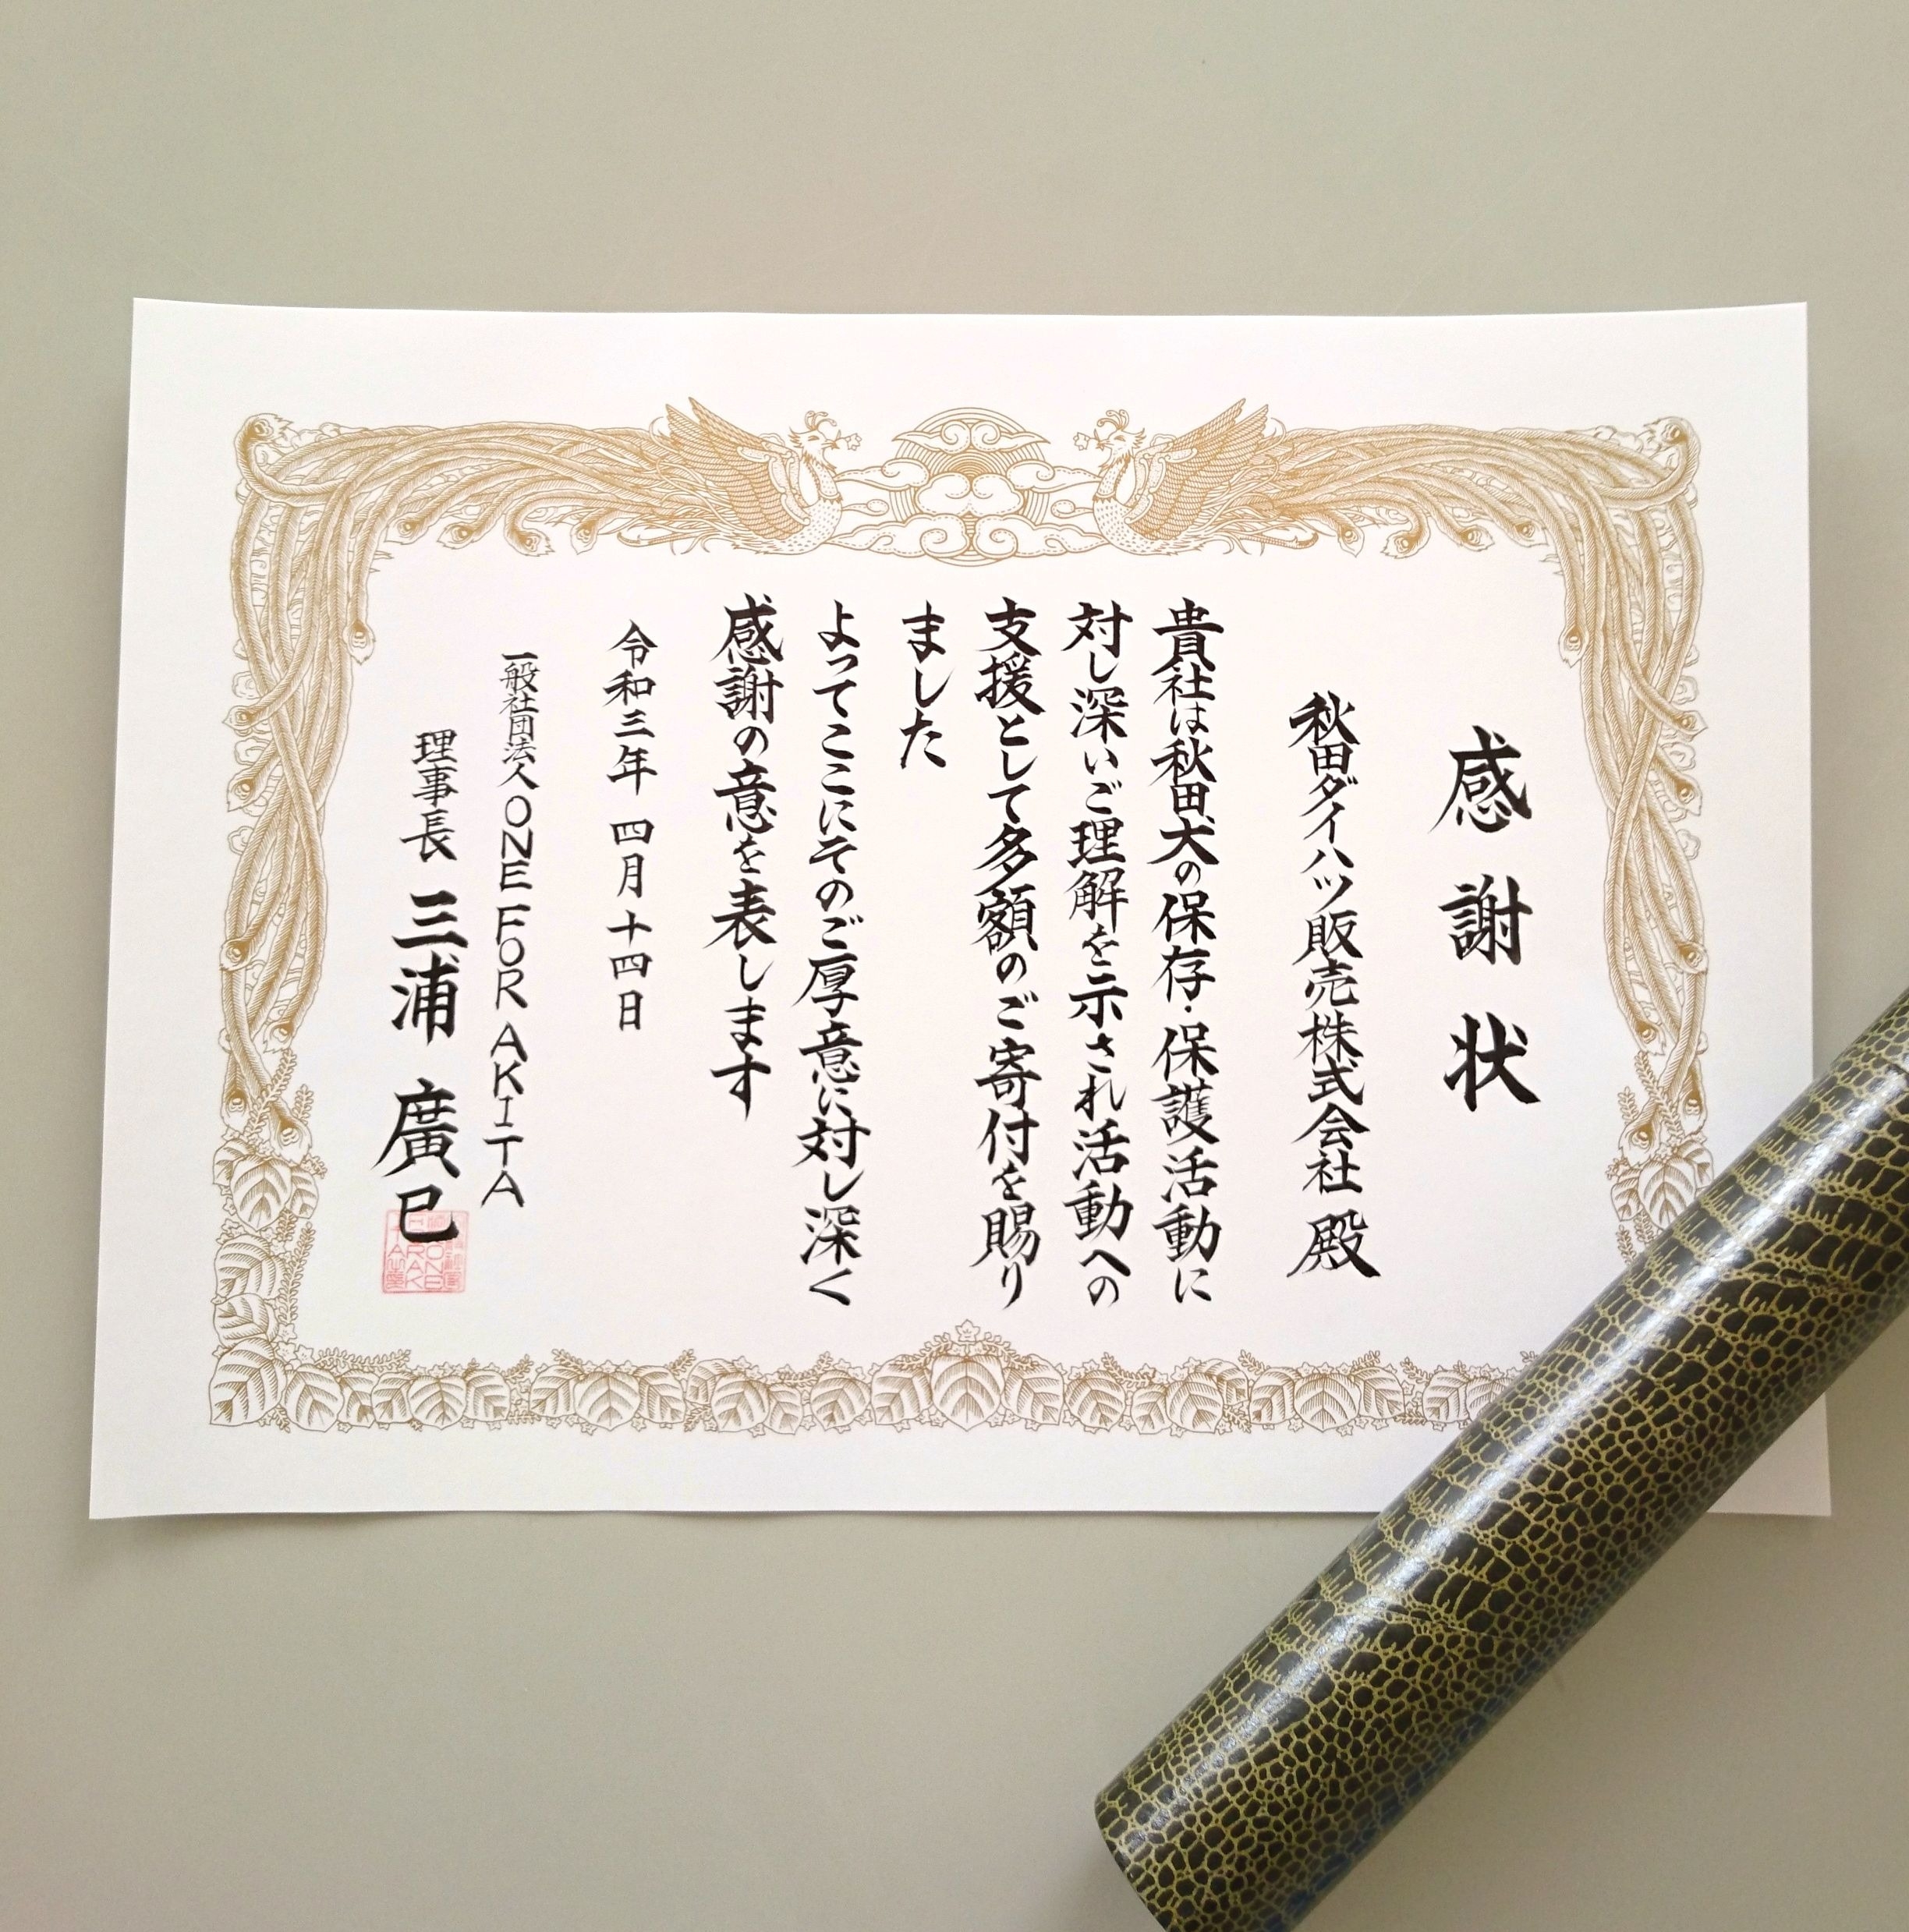 感謝状
秋田ダイハツ販売株式会社 殿
貴社は秋田犬の保存・保護活動に
対し深いご理解を示され活動への
支援として多額のご寄付を賜り
ました
よってここにそのご厚意に対し深く
感謝の意を表します
令和三年 四月十四日
一般社団法人ONE FOR AKITA
理事長 三浦 廣巳